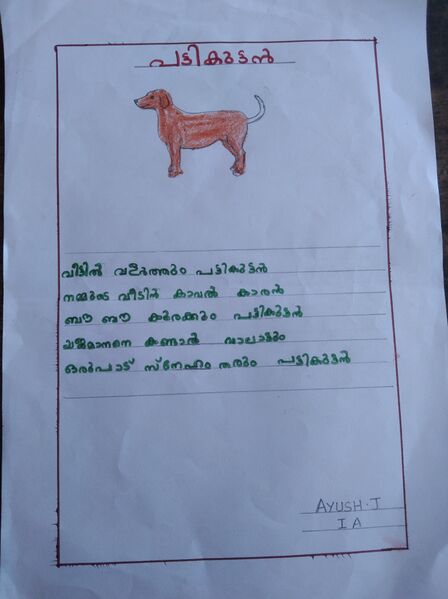 പട്ടികുട്ടൻ
വീട്ടിൽ വളർത്തും പട്ടികുട്ടൻ
നമ്മുടെ വീടിൻ കാവൽ കാരൻ
ബൗ ബൗ കുരക്കും പട്ടികുട്ടൻ
യജമാനനെ കണ്ടാൽ വാലാട്ടും
ഒരുപാട് സ്നേഹം തരും പട്ടികുട്ടൻ
AYUSH.J
I A